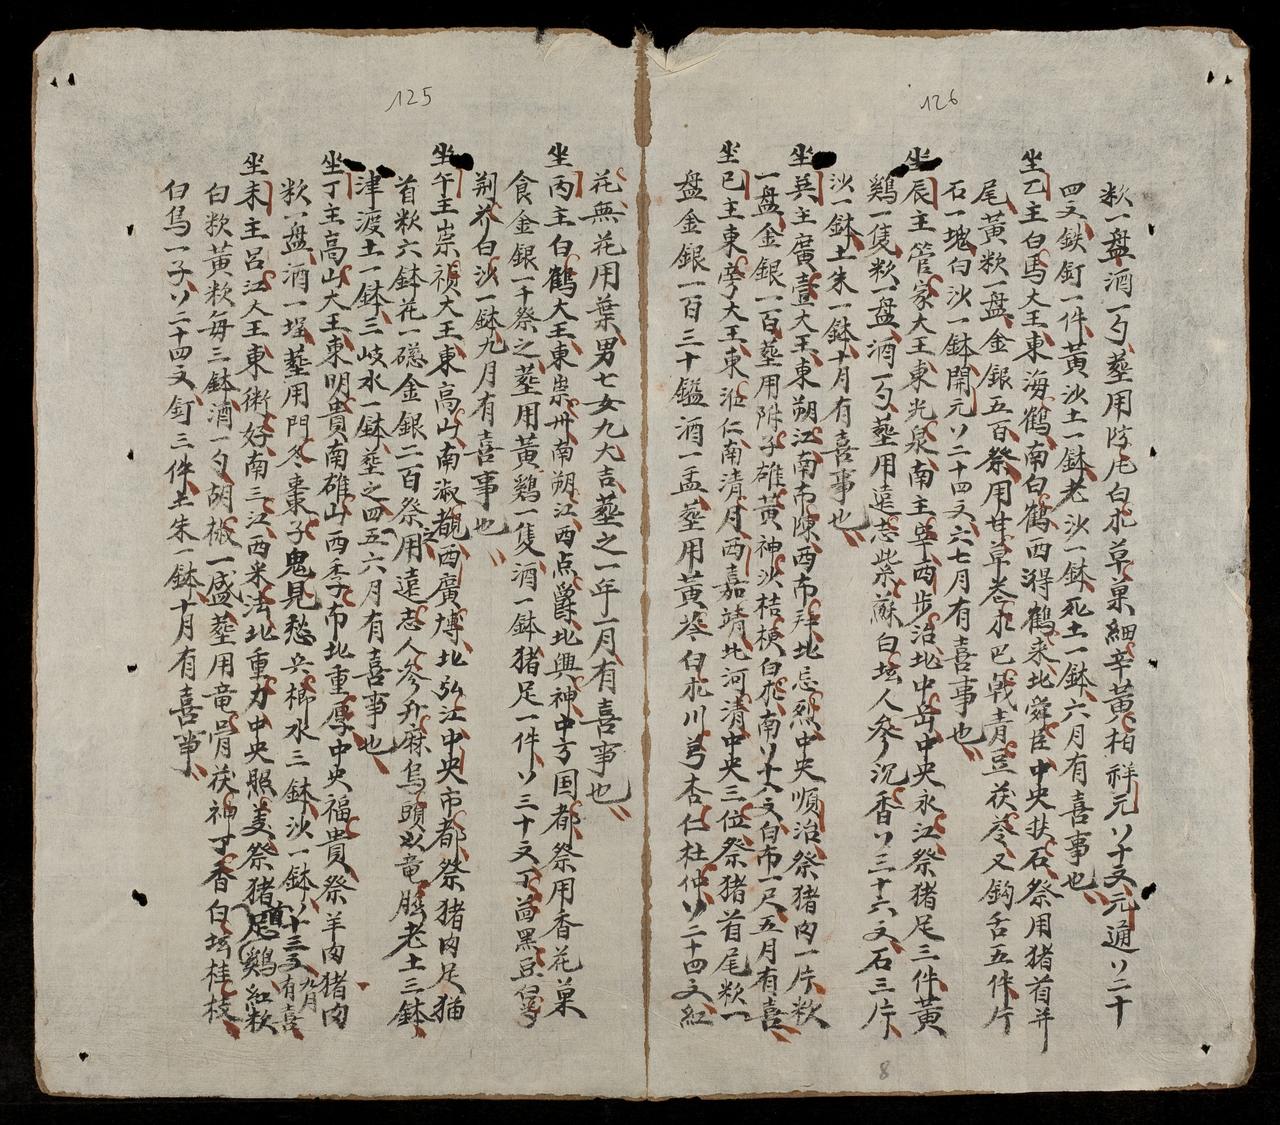 126
欶一盘酒一勺𦵏用防风白朮草菓細辛黃柏祥元丷十文元通丷二十
四文鉄釘一件黃沙土一鉢老沙一鉢死土一鉢六月有喜事也
坐乙主白馬大王東海鶴南白鶴西得鶴釆北舜臣中央扶石祭用猪首并
尾黃欶一盘金銀五百祭用甘草巻巴戟青豆茯苓又鈎舌五件斤
石一塊白沙一鉢開元丷二十四文六七月有喜事也
坐辰主管家大王東光泉南主單西步治北中岳中央永江祭猪足三件黃
鷄一隻欶一盘酒一勺𦵏用遠志柴蘇白坛人參沉香丷三十六文石三片
沙一鉢土朱一鉢十月有喜事也
坐英主廣壹大王東朔江南南陳西南拜北忌烈中央順治祭猪肉一片欶
一盘金銀一百𦵏用附子雄黃神沙桔梗白朮南丷十六文白布一尺五月有喜
坐巳主東宰大王東淮仁南清月西嘉靖北河清中央三位祭猪首尾欶一
盘金銀一百三十鎰酒一盂𦵏用黃苓白朮川芎杏仁杜仲丷二十四文紅
8
125
花無花用葉男七女九大吉𦵏之一年一月有喜事也
坐丙主白鶴大王東崇卅南朔江西点爵北興神中方国都祭用香花菓
食金銀一千祭之𦵏用黃鷄一隻酒一鉢猪足一件丷三十文丁茴黑豆
荆芥白沙一鉢九月有喜事也
坐午主崇禎大王東高山南淑覩西廣博北弘江中央市都祭猪肉足猫
首欶六鉢花一磁金銀二百祭之用遠志人參升麻烏頭竜脳老土三鉢
津渡土一鉢三岐水一鉢𦵏之四五六月有喜事也
坐丁主高山大王東明貴南雄山西季布北重厚中央福貴祭羊肉猪肉
欶一盘酒一埕𦵏用門冬棗子鬼見愁兵榔水三鉢沙一鉢十三文九月有喜
坐未主呂江大王東術好南三江西米法北重力中央照美祭猪頭足鷄紅欶
白欶黃欶每三鉢酒一勺胡椒一盛𦵏用竜骨茯神丁香白坛桂棧
白烏一子丷二十四文釘三件土朱一鉢十月有喜事